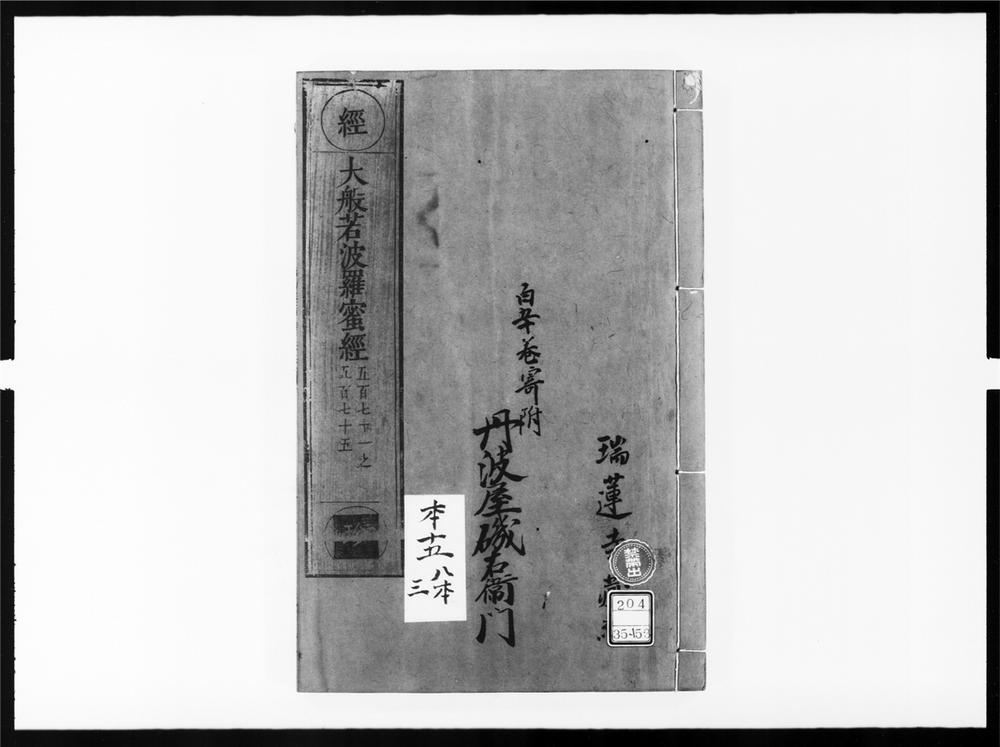 瑞蓮寺
禁帶出
204
35-153
巻寄附
丹波屋磯右衞門
本十五
八本
三
經
大般若波羅蜜經
五百七十一之
五百七十五